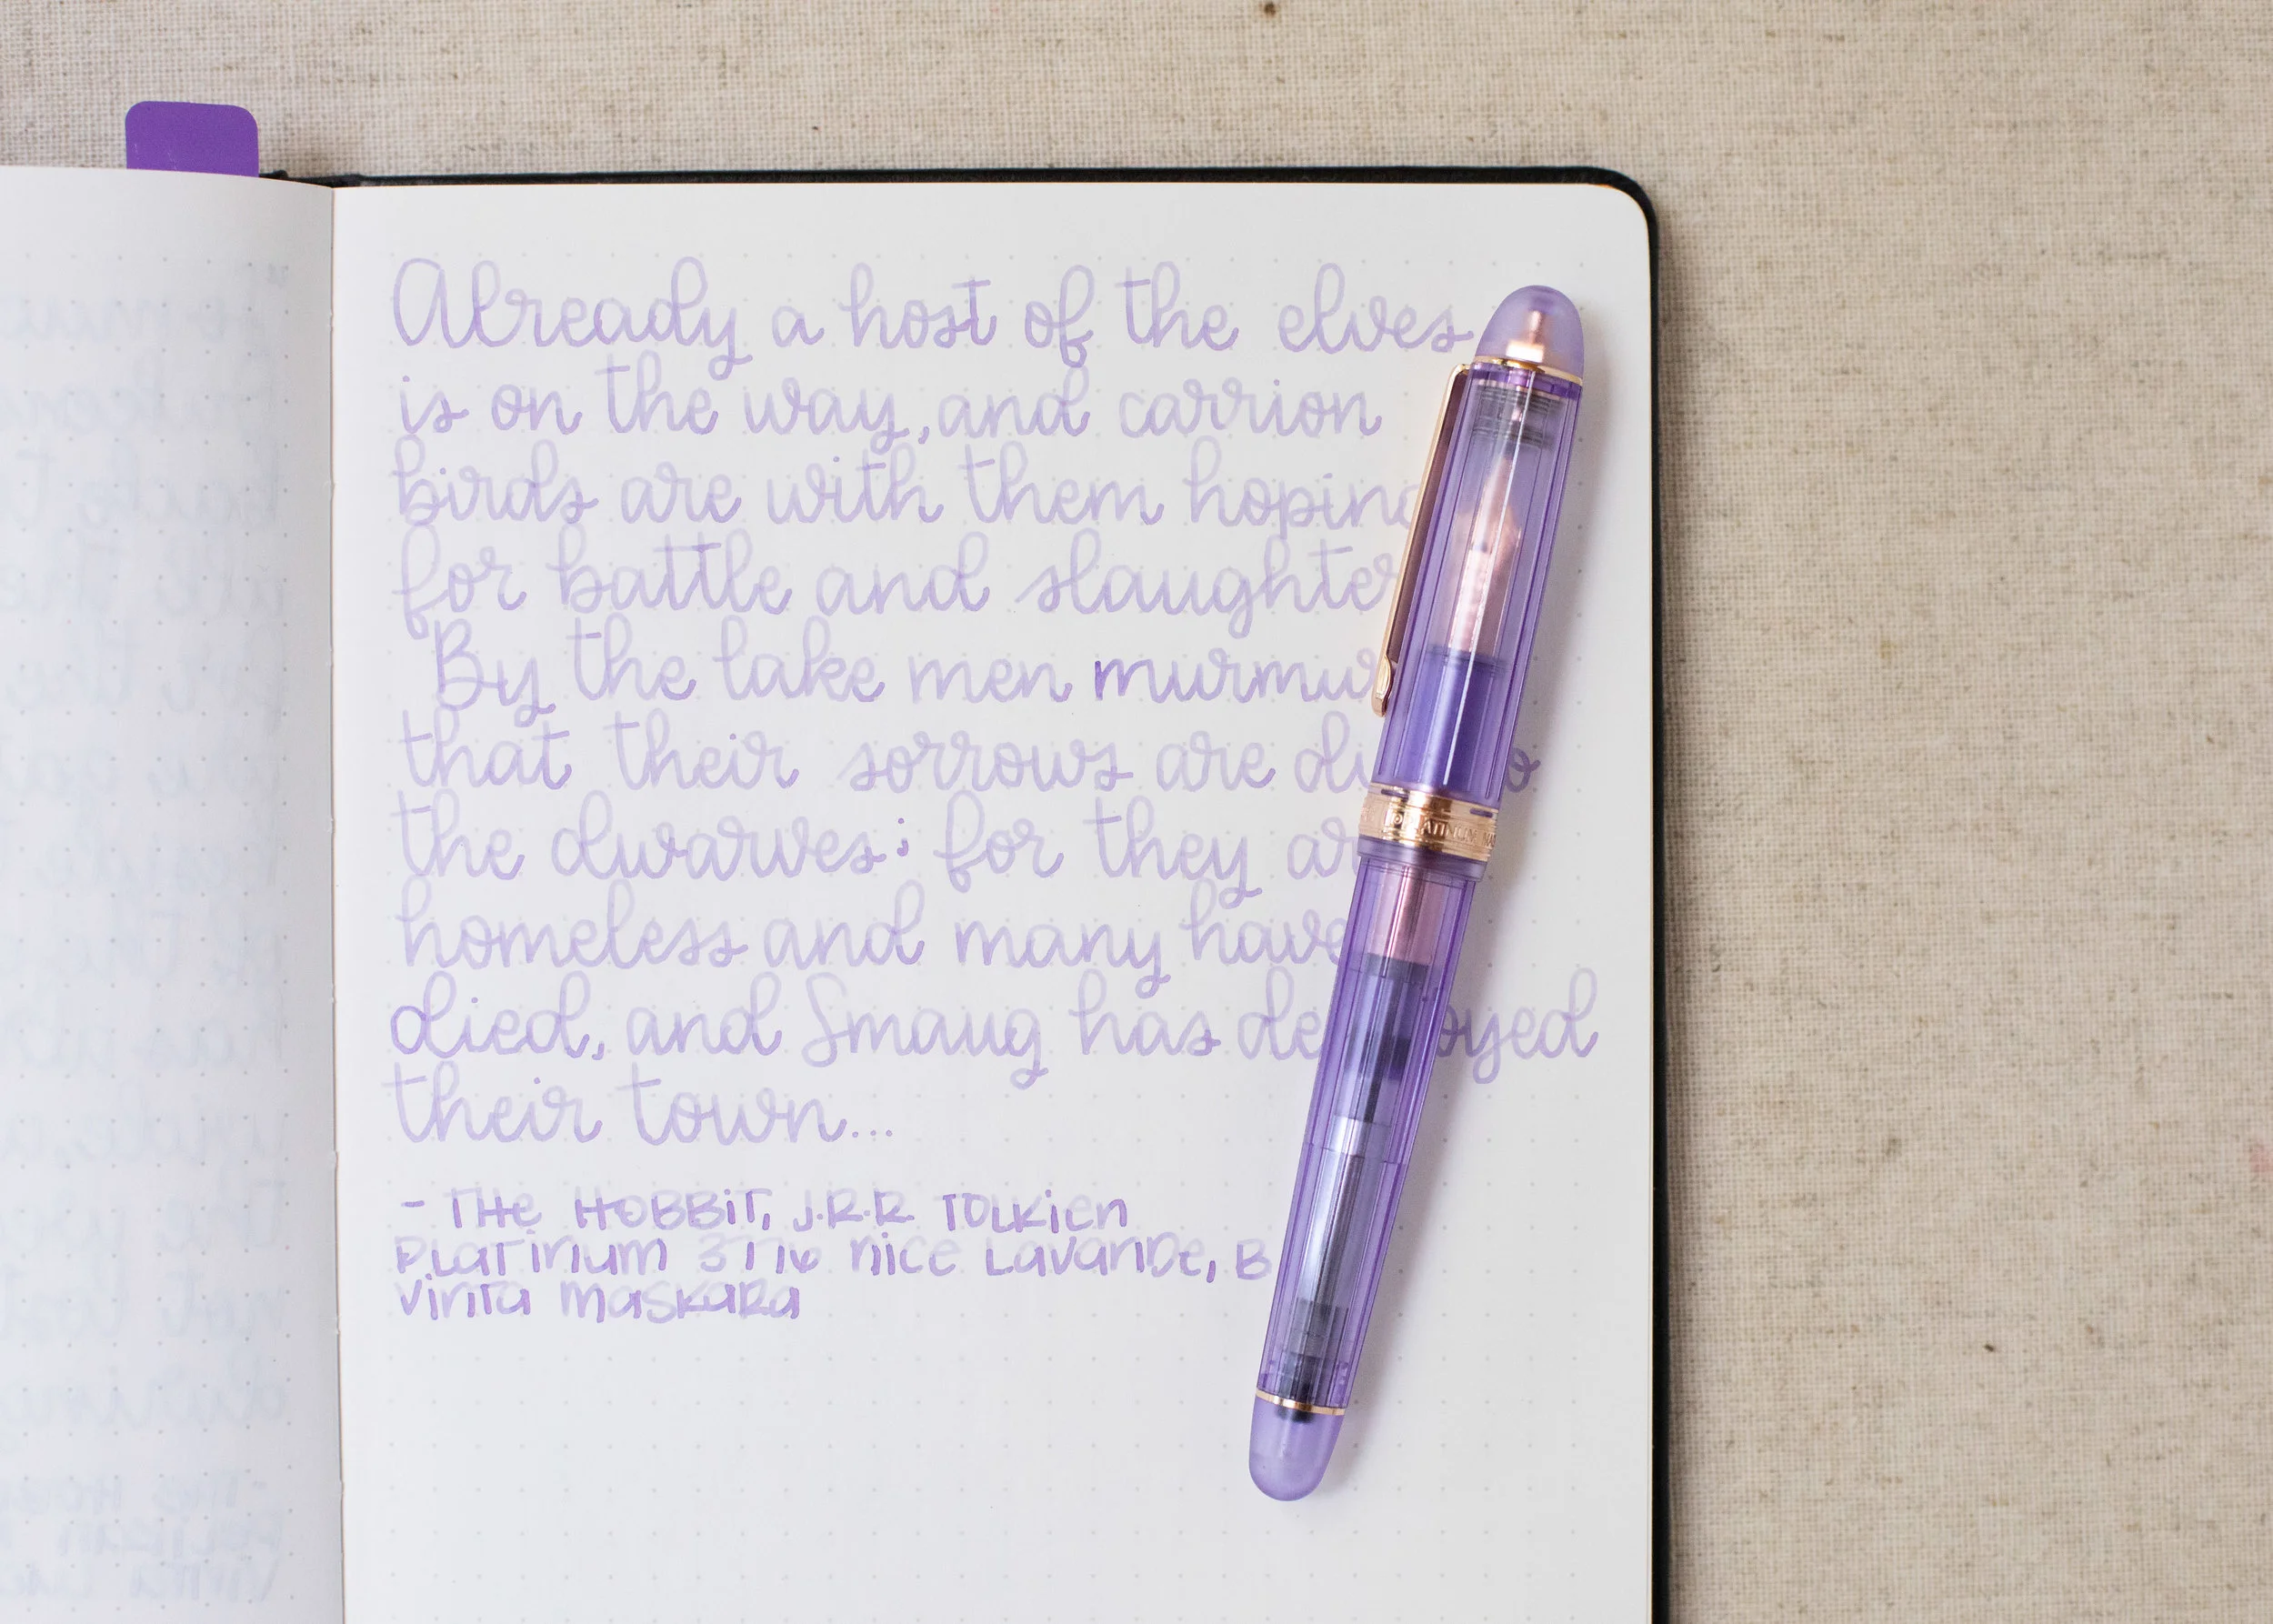 Already a host of the elves
is on the way, and carrion
birds are with them hoping
for battle and slaughter
By the lake men murmur
that their sorrows are
the dwarves; for they are
homeless and many have
died, and Smaug has destroyed
their town...
- THE HOBBIT, J.R.R. TOLKIEN
PLATINUM 3776 NICE LAVANDE, B
VINTA MASKARA
PLATINUM